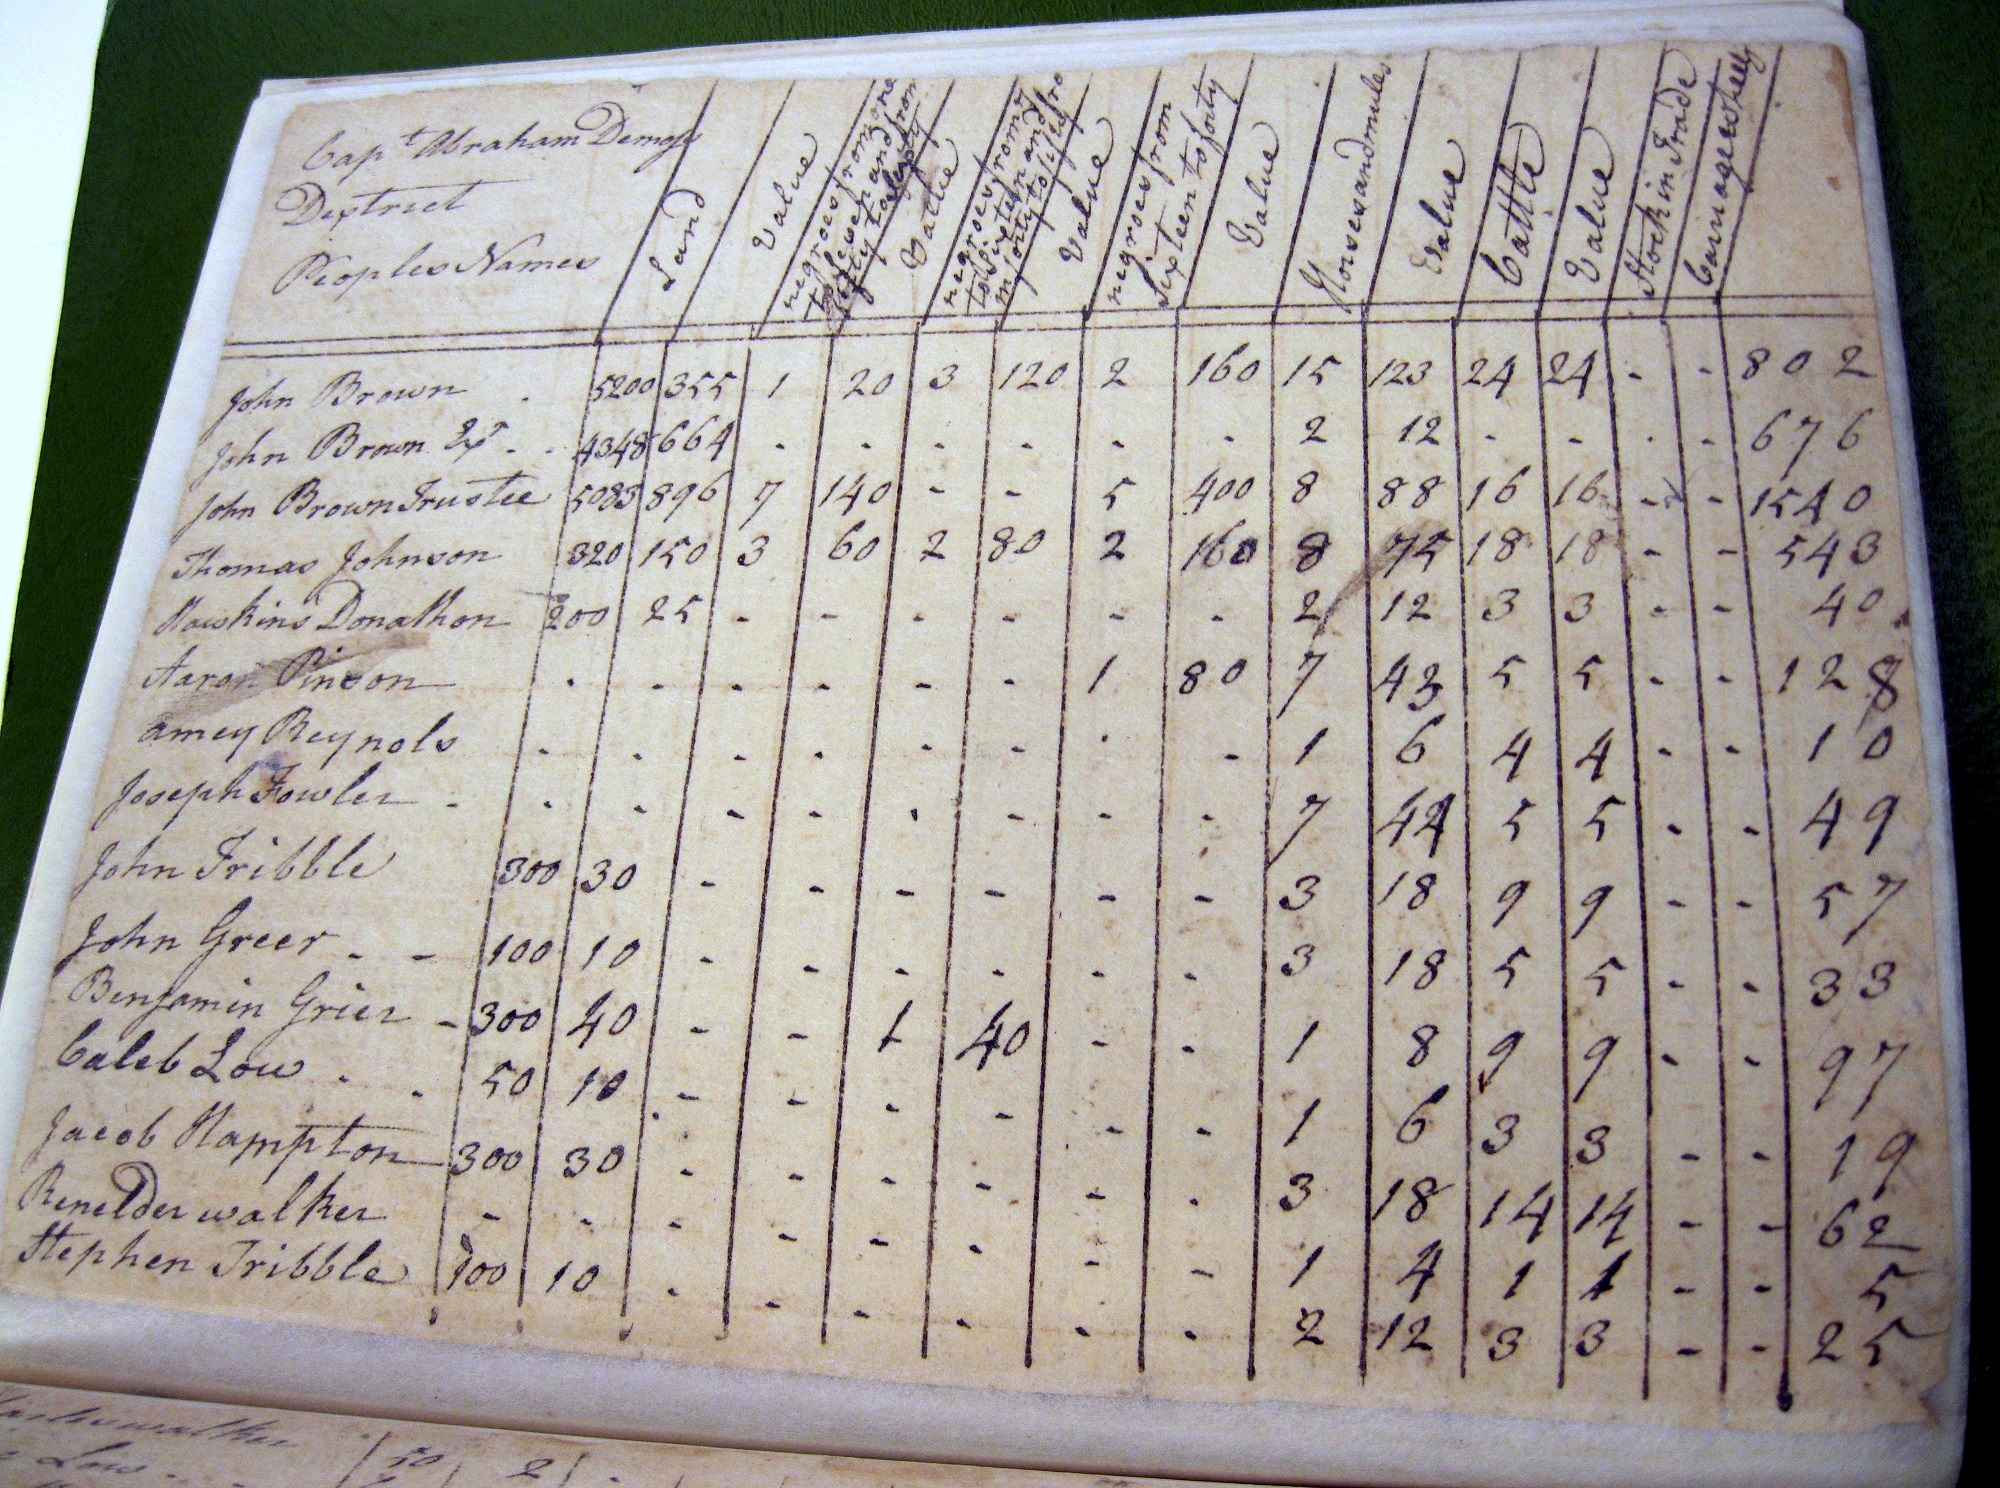 Capt Abraham Demoss
Destrict
Peoples Names
Land
Value
negroes from one
to
fifty to
Value
negroes from
to Sixteen and from
forty to fifty
Value
negroes from
Sixteen to forty
Value
Horses and mules
Value
Cattle
Value
Stock in Trade
John Brown . 5200 355 1 20 3 120 2 160 15 123 24 24 - - 802
John Brown . . 4348 664 - - - - - - 2 12 - - - - 676
John Brown Trustee 5083 896 7 140 - - 5 400 8 88 16 16 - - 1540
Thomas Johnson 320 150 3 60 2 80 2 160 8 75 18 18 - - 543
Hawkins Donathon 200 25 - - - - - - 2 12 3 3 - - 40
Aaron Pinson . . . . . . 1 80 7 43 5 5 - - 128
amey Reynols . . . . . . . - 1 6 4 4 - - 10
Joseph Fowler - . . . . . - - - 7 44 5 5 - - 49
John Tribble 300 30 - - - - - - 3 18 9 9 - - 57
John Greer . - 100 10 - - - - - - 3 18 5 5 - - 33
Benjamin Grier - 300 40 - - 1 40 - - 1 8 9 9 - - 97
Caleb Low . . 50 10 - - - - - - 1 6 3 3 - - 19
Jacob Hampton 300 30 - - - - - - 3 18 14 14 - - 62
Renelder walker - - - - - - - - 1 4 1 1 - - 5
Stephen Tribble 100 10 . - - - - - 2 12 3 3 - - 25
walker
Low - - 50 2 -